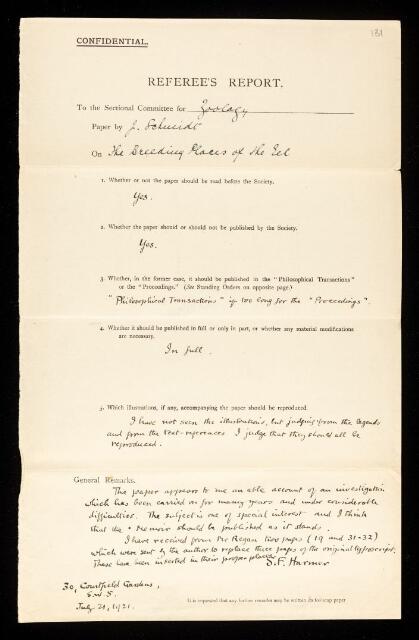 CONFIDENTIAL.
131
REFEREE'S REPORT.
To the Sectional Committee for Zoology
Paper by J. Schmidt
On The Breeding Places of the Eel
1. Whether or not the paper should be read before the Society.
Yes.
2. Whether the paper should or should not be published by the Society.
Yes.
3. Whether, in the former case, it should be published in the "Philosophical Transactions"
or the "Proceedings." (See Standing Orders on opposite page.)
"Philosophical Transactions" if too long for the "Proceedings".
4. Whether it should be published in full or only in part, or whether any material modifications
are necessary.
In full.
5. Which illustrations, if any, accompanying the paper should be reproduced.
I have not seen the illustrations, but judging from the legends
and from the text-references I judge that they should all be
reproduced.
General Remarks.
The paper appears to me an able account of an investigation
which has been carried on for many years and under considerable
difficulties. The subject is one of special interest and I think
that the memoir should be published as it stands.
I have received from Mr Regan two pages (19 and 31-32)
which were sent by the author to replace three pages of the original typescript.
These have been inserted in their proper places.
S.F. Harmer
30, Courtfield Gardens,
S.W.5.
July 21, 1921.
It is requested that any further remarks may be written on foolscap paper